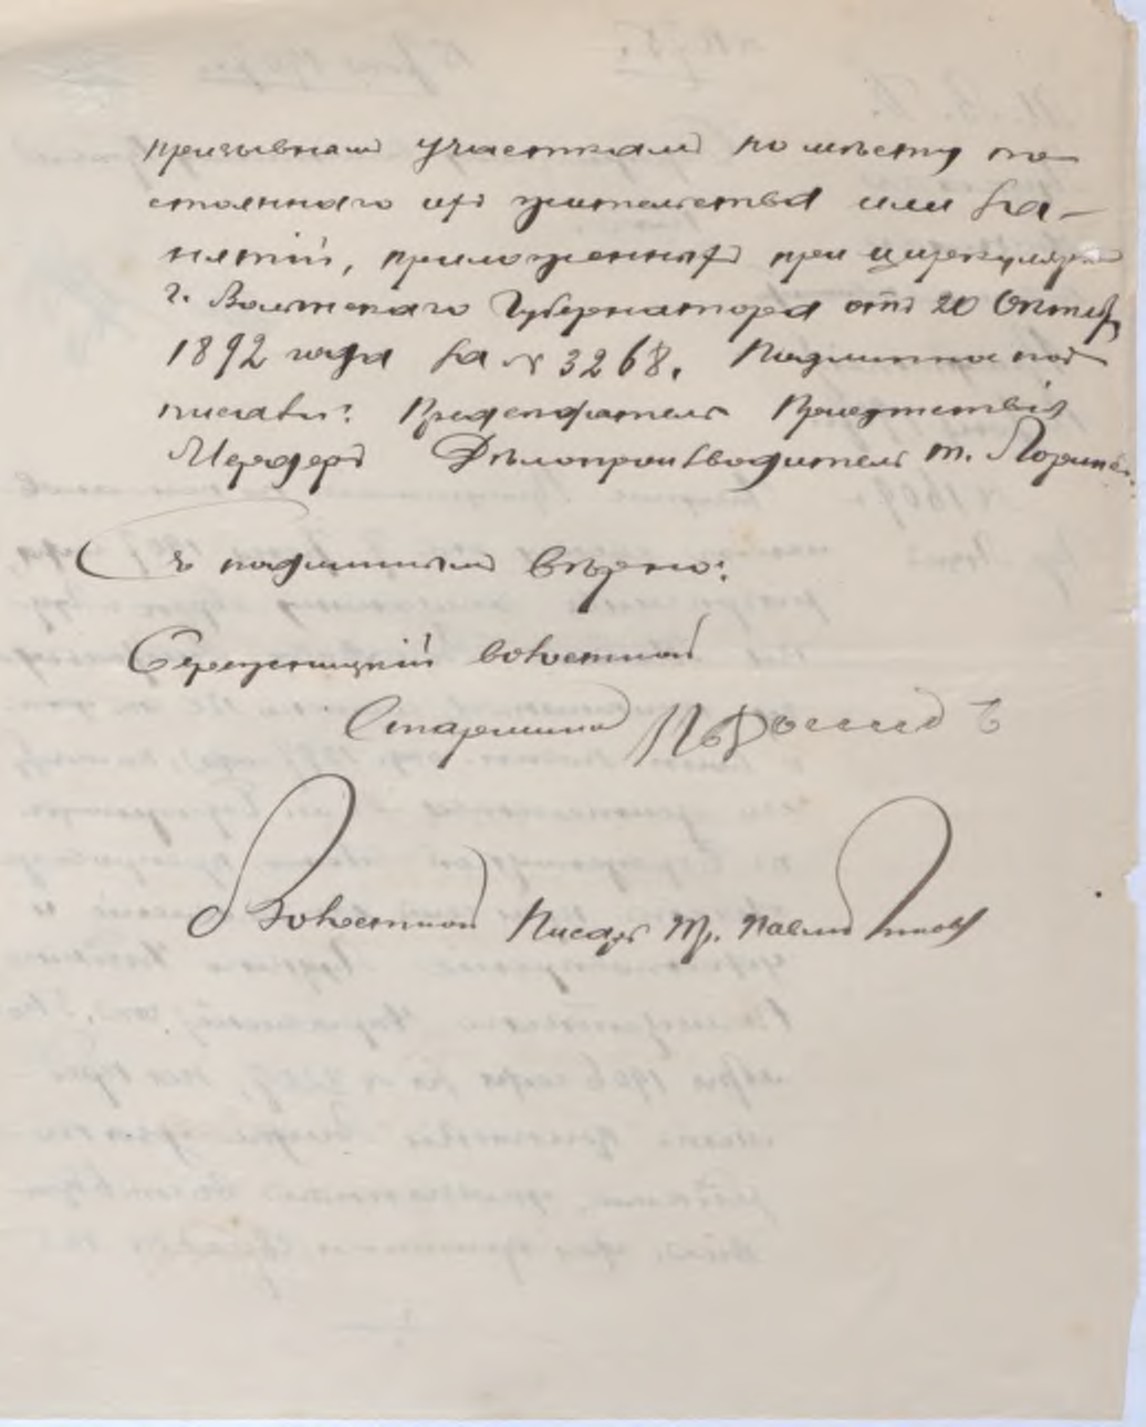 призывнымъ участкамъ по мѣсту по
стояннаго ихъ жительства или за-
нятій, приложенныхъ при циркулярѣ
г. Волынскаго Губернатора отъ 20 Октяб.
1892 года за № 3268. Подлинное под
писали: Предсѣдатель Присутствія
Мердеръ Дѣлопроизводитель т.
Съ подлиннымъ вѣрно:
Волостной
Старшина
Волостной Писарь